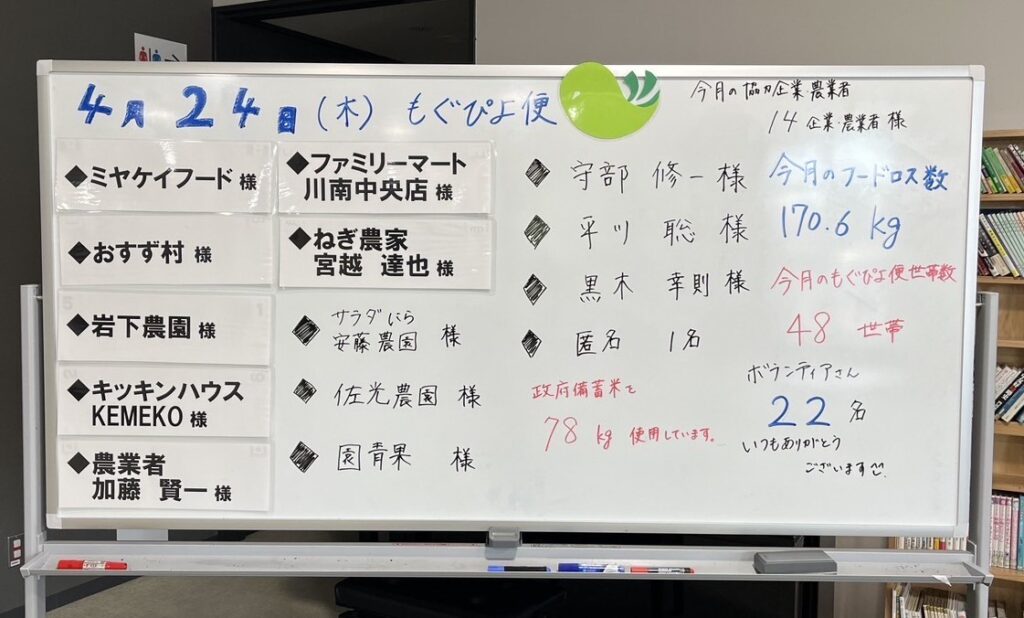 4月24日(木) もぐぴよ便
◆ミヤケイフード 様
◆おすず村 様
◆岩下農園 様
◆キッキンハウス
KEMEKO 様
◆農業者
加藤 賢一 様
◆ファミリーマート
川南中央店 様
◆ねぎ農家
宮越 達也 様
◆ サラダにら
安藤農園 様
◆ 佐光農園 様
◆ 園青果 様
◆ 守部 修一 様
◆ 平川 聡 様
◆ 黒木 幸則 様
◆ 匿名 1名
政府備蓄米を
78 kg 使用しています。
今月の協力企業・農業者
14 企業・農業者 様
今月のフードロス数
170.6 kg
今月のもぐぴよ便世帯数
48 世帯
ボランティアさん
22 名
いつもありがとう
ございます